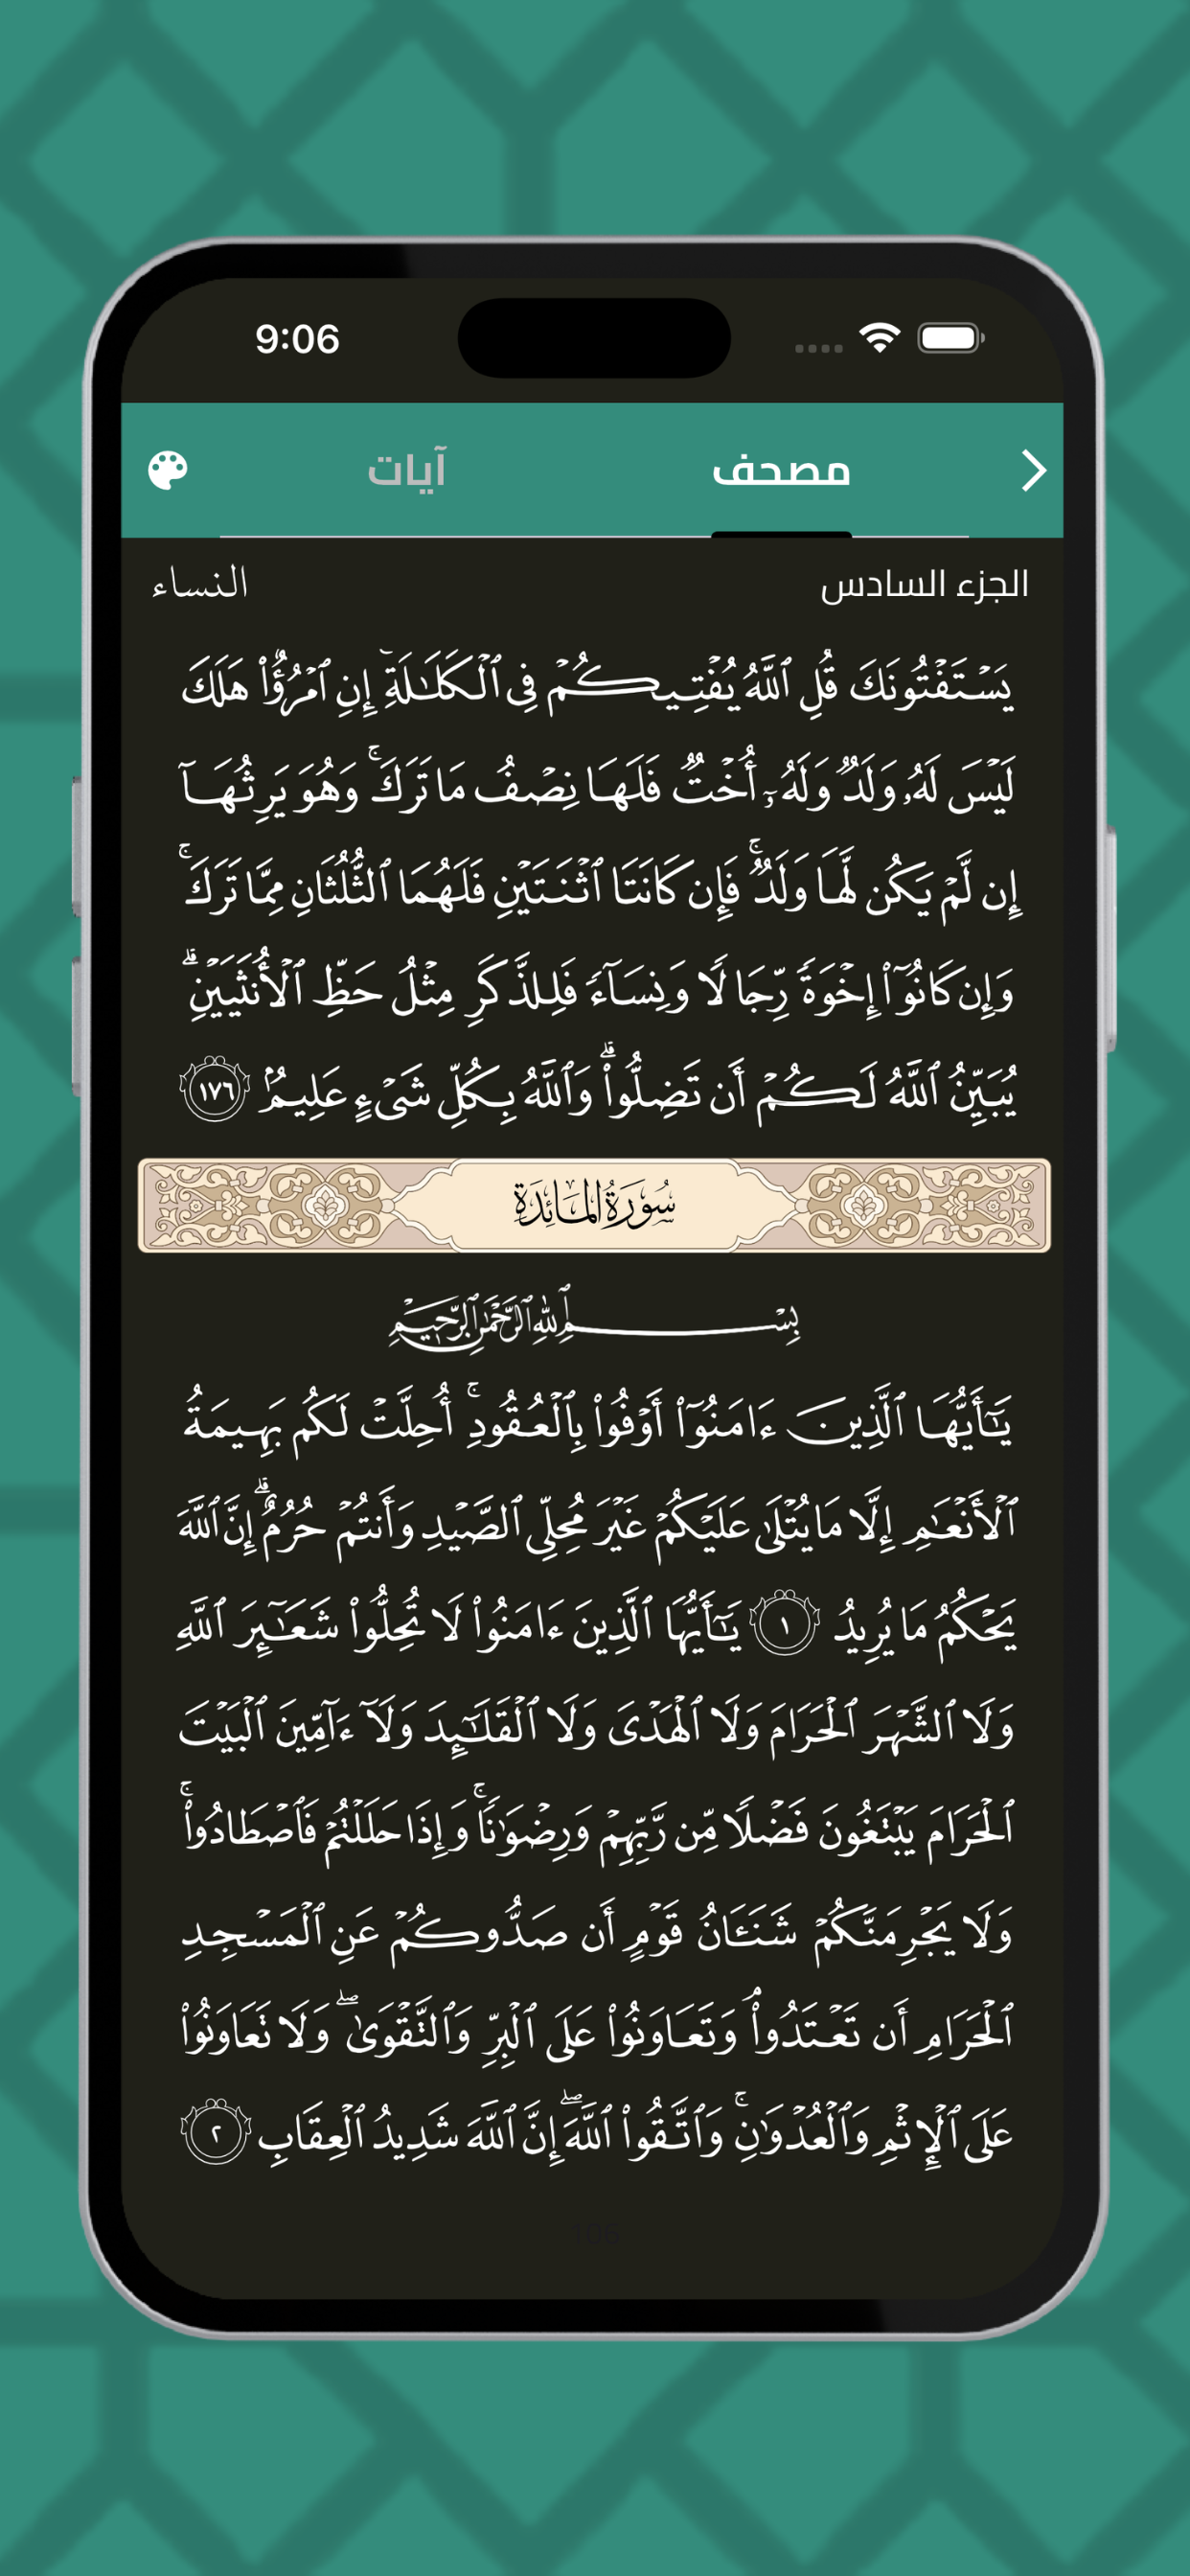 9:06
مصحف آيات
الجزء السادس النساء
يَسۡتَفۡتُونَكَ قُلِ ٱللَّهُ يُفۡتِيكُمۡ فِي ٱلۡكَلَٰلَةِۚ إِنِ ٱمۡرُؤٌاْ هَلَكَ
لَيۡسَ لَهُۥ وَلَدٞ وَلَهُۥٓ أُخۡتٞ فَلَهَا نِصۡفُ مَا تَرَكَۚ وَهُوَ يَرِثُهَآ
إِن لَّمۡ يَكُن لَّهَا وَلَدٞۚ فَإِن كَانَتَا ٱثۡنَتَيۡنِ فَلَهُمَا ٱلثُّلُثَانِ مِمَّا تَرَكَۚ
وَإِن كَانُوٓاْ إِخۡوَةٗ رِّجَالٗا وَنِسَآءٗ فَلِلذَّكَرِ مِثۡلُ حَظِّ ٱلۡأُنثَيَيۡنِۗ
يُبَيِّنُ ٱللَّهُ لَكُمۡ أَن تَضِلُّواْۗ وَٱللَّهُ بِكُلِّ شَيۡءٍ عَلِيمُۢ ١٧٦
سُورَةُ المَائِدَةِ
بِسۡمِ ٱللَّهِ ٱلرَّحۡمَٰنِ ٱلرَّحِيمِ
يَٰٓأَيُّهَا ٱلَّذِينَ ءَامَنُوٓاْ أَوۡفُواْ بِٱلۡعُقُودِۚ أُحِلَّتۡ لَكُم بَهِيمَةُ
ٱلۡأَنۡعَٰمِ إِلَّا مَا يُتۡلَىٰ عَلَيۡكُمۡ غَيۡرَ مُحِلِّي ٱلصَّيۡدِ وَأَنتُمۡ حُرُمٌۗ إِنَّ ٱللَّهَ
يَحۡكُمُ مَا يُرِيدُ ١ يَٰٓأَيُّهَا ٱلَّذِينَ ءَامَنُواْ لَا تُحِلُّواْ شَعَٰٓئِرَ ٱللَّهِ
وَلَا ٱلشَّهۡرَ ٱلۡحَرَامَ وَلَا ٱلۡهَدۡيَ وَلَا ٱلۡقَلَٰٓئِدَ وَلَآ ءَآمِّينَ ٱلۡبَيۡتَ
ٱلۡحَرَامَ يَبۡتَغُونَ فَضۡلٗا مِّن رَّبِّهِمۡ وَرِضۡوَٰنٗاۚ وَإِذَا حَلَلۡتُمۡ فَٱصۡطَادُواْۚ
وَلَا يَجۡرِمَنَّكُمۡ شَنَـَٔانُ قَوۡمٍ أَن صَدُّوكُمۡ عَنِ ٱلۡمَسۡجِدِ
ٱلۡحَرَامِ أَن تَعۡتَدُواْۘ وَتَعَاوَنُواْ عَلَى ٱلۡبِرِّ وَٱلتَّقۡوَىٰۖ وَلَا تَعَاوَنُواْ
عَلَى ٱلۡإِثۡمِ وَٱلۡعُدۡوَٰنِۚ وَٱتَّقُواْ ٱللَّهَۖ إِنَّ ٱللَّهَ شَدِيدُ ٱلۡعِقَابِ ٢
106